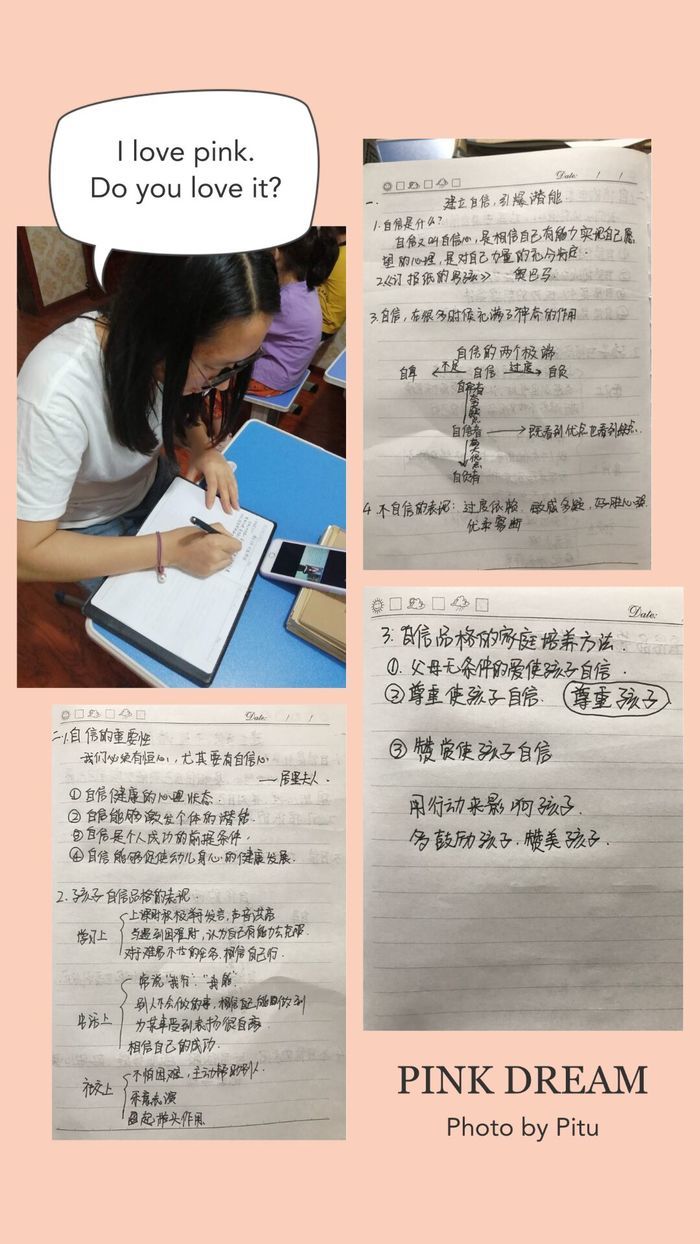 I love pink.
Do you love it?
Date: / /
一.
建立自信,引爆潜能
1.自信是什么?
自信又叫自信心,是相信自己有能力实现自己愿
望的心理,是对自己力量的充分肯定.
2.《订报纸的男孩》 奥巴马
3.自信,在很多时候充满了神奇的作用
自信的两个极端
自卑 不足 自信 过度 自负
自卑者
自信者 既看到优点也看到缺点.
自负者
4.不自信的表现:过度依赖、敏感多疑,好胜心强
优柔寡断
Date:
3.自信品格的家庭培养方法.
①.父母无条件的爱使孩子自信.
②尊重使孩子自信. 尊重孩子
③赞赏使孩子自信
用行动来影响孩子.
多鼓励孩子.赞美孩子.
Date: / /
二.1.自信的重要性
我们必须有恒心,尤其要有自信心
——居里夫人.
①自信健康的心理状态.
②自信能够激发个体的潜能.
③自信是个人成功的前提条件.
④自信能够促使幼儿身心的健康发展.
2.孩子自信品格的表现.
学习上
上课时积极举手发言,声音洪亮
当遇到困难时,认为自己有能力去克服.
对于难易不等的任务,相信自己行.
生活上
常说"我行"."我能"
别人不会做的事,相信自己能做到
为某事受到表扬很自豪
相信自己的成功.
社交上
不怕困难,主动帮助别人.
乐意表演
起带头作用
PINK DREAM
Photo by Pitu